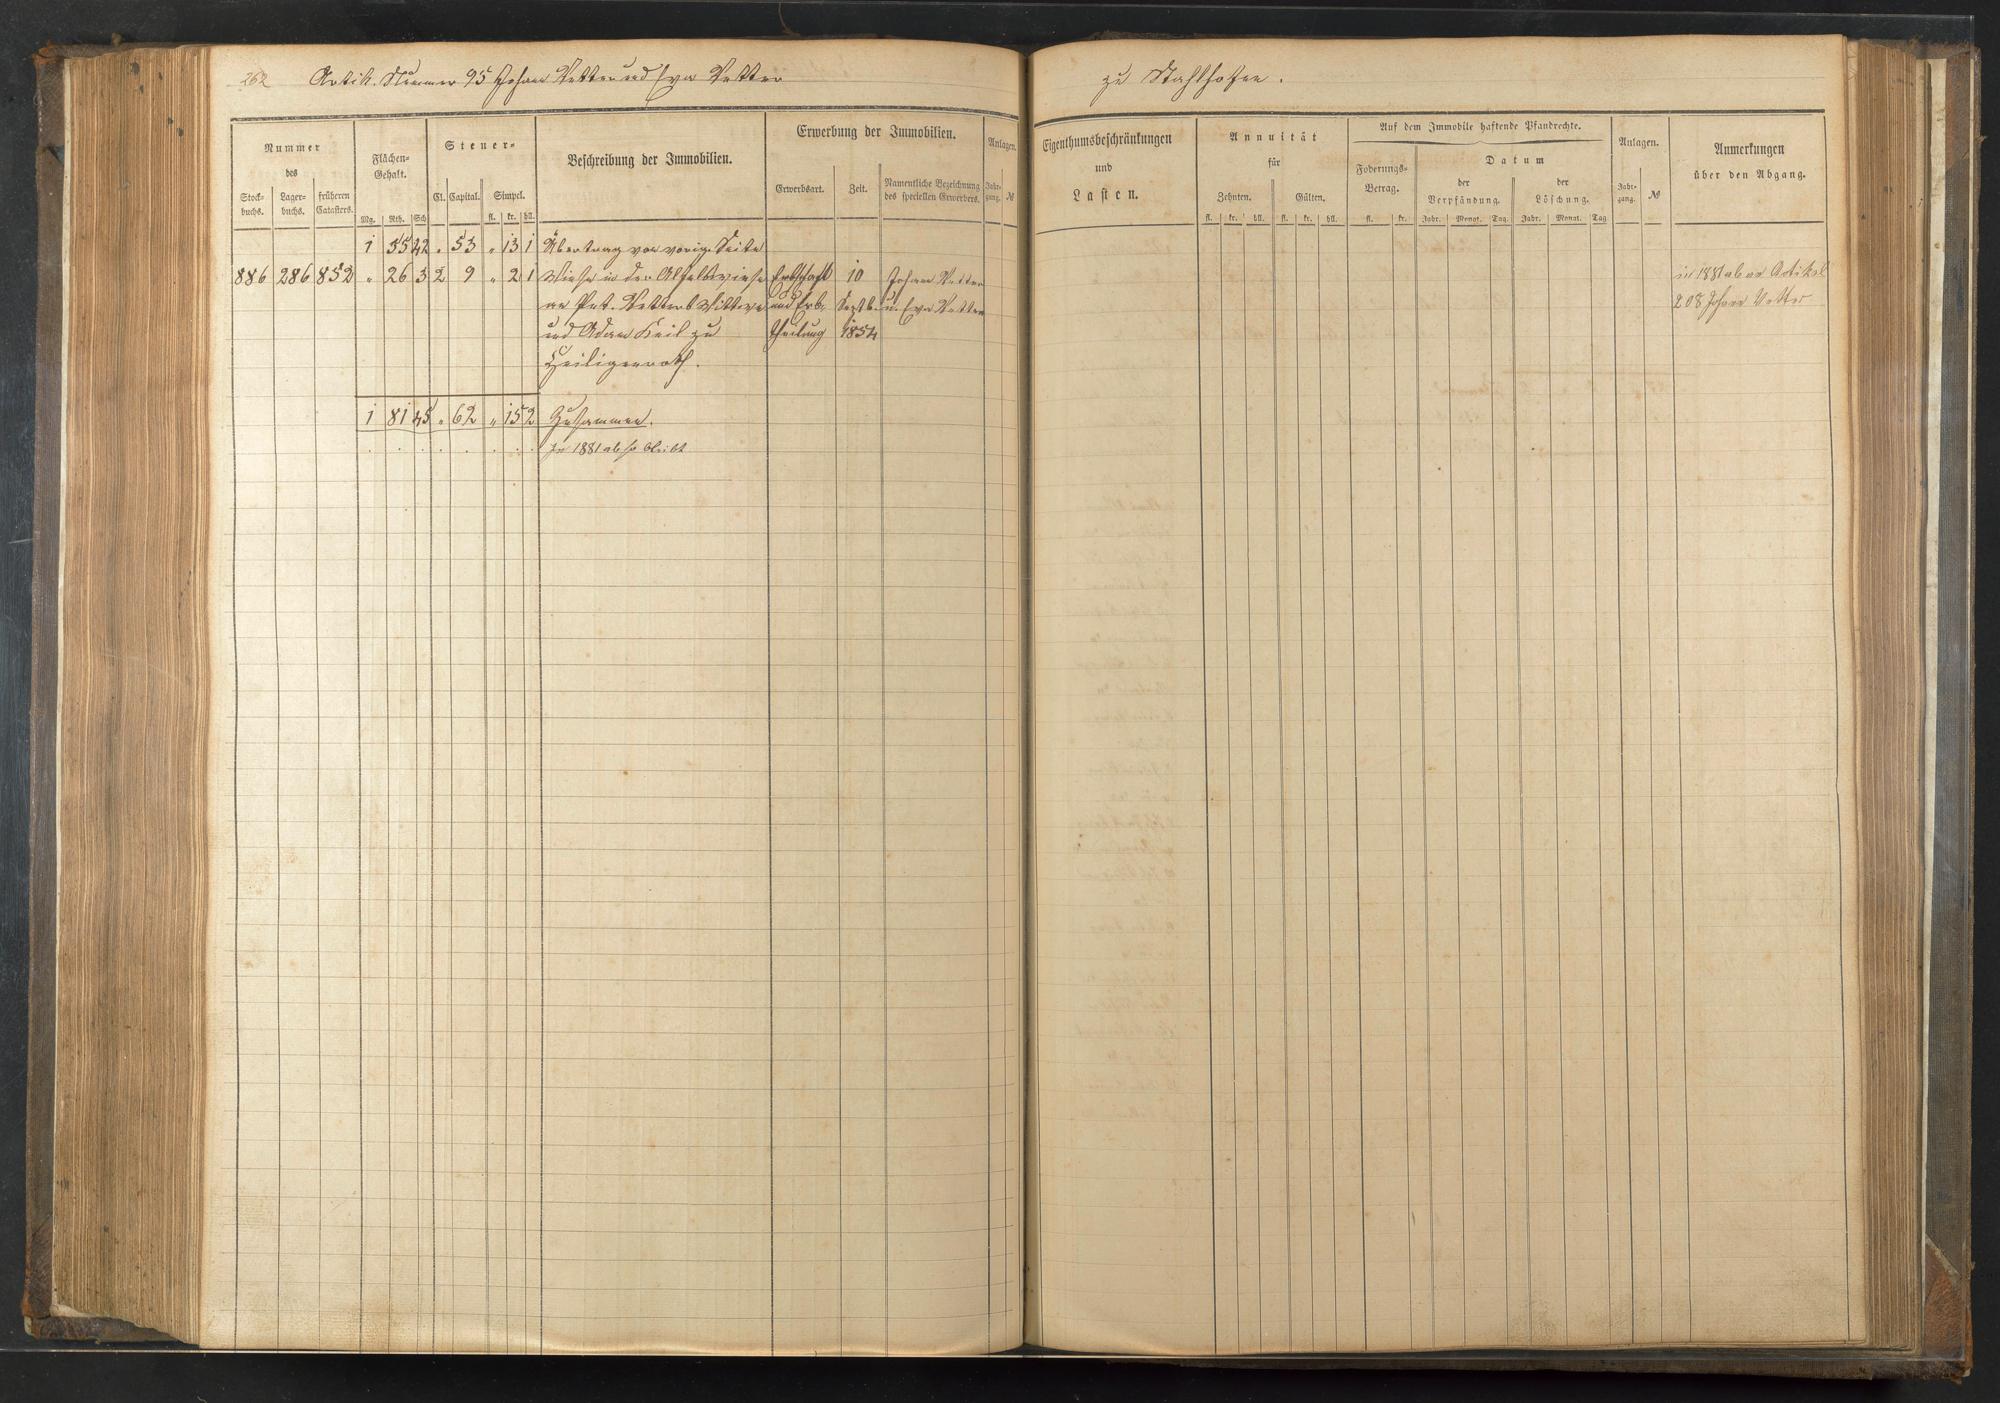 262 Artik. Nummer 95 Johann Vetter und Eva Vetter
zu Stahlhofen.
Nummer
des
Stock-
buchs.
Lager-
buchs.
früheren
Catasters.
Flächen-
Gehalt.
Mg. Rth. Sch
Steuer-
Cl. Capital. Simpel.
fl. kr. hll.
Beschreibung der Immobilien.
Erwerbung der Immobilien.
Erwerbsart. Zeit.
Namentliche Bezeichnung
des speciellen Erwerbers.
Anlagen.
Jahr-
gang. №
Eigenthumsbeschränkungen
und
Lasten.
Annuität
für
Zehnten. Gülten.
fl. kr. hll. fl. kr. hll.
Auf dem Immobile haftende Pfandrechte.
Foderungs-
Betrag.
fl. kr.
Datum
der
Verpfändung.
der
Löschung.
Jahr. Monat. Tag. Jahr. Monat. Tag
Anlagen.
Jahr-
gang. №
Anmerkungen
über den Abgang.
1 55 42 „ 53 „ 13 1 Übertrag von vorig. Seite
886 286 852 „ 26 3 2 9 „ 2 1 Wiese in der
an Pet. Vetters Wittwe
und Adam Keil zu
Heiligenroth.
Erbschaft
und Erb-
theilung
10
Septb.
1854
Johann Vetter
u. Eva Vetter
in 1881 ab an Artikel
208 Johann Vetter
1 81 45 „ 62 „ 15 2 Zusammen.
In 1881 ab so bleibt